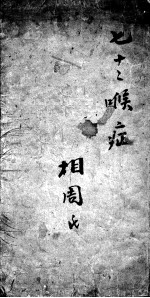 七十二喉症
相周氏